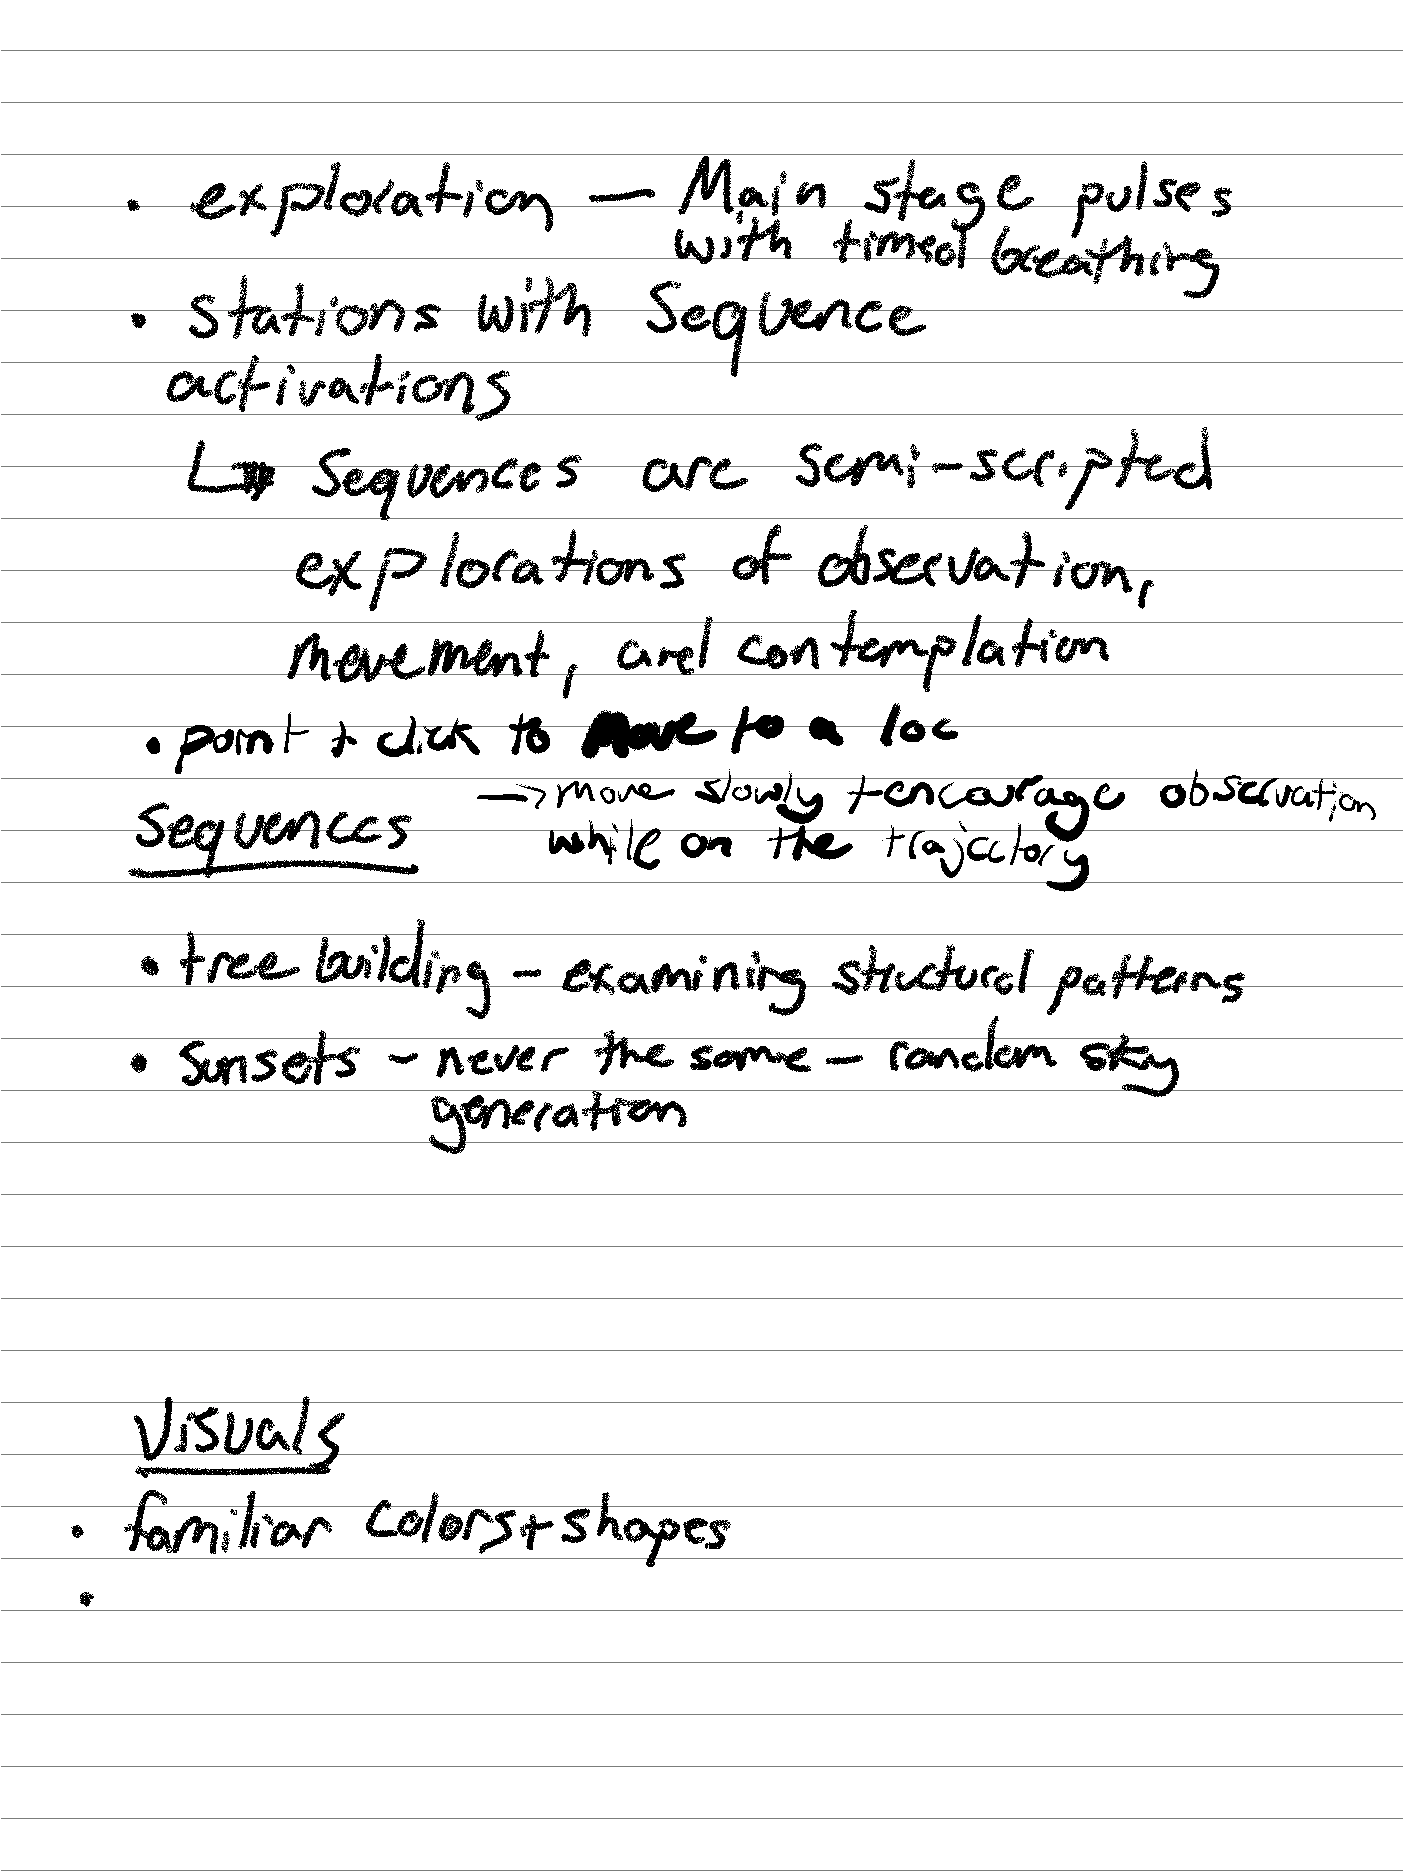 • exploration — Main stage pulses
with timed breathing
• stations with Sequence
activations
↳ Sequences are semi-scripted
explorations of observation,
movement, and contemplation
• point + click to move to a loc
→ move slowly + encourage observation
while on the trajectory
Sequences
• tree building - examining structural patterns
• Sunsets - never the same - random sky
generation
Visuals
• familiar colors + shapes
•